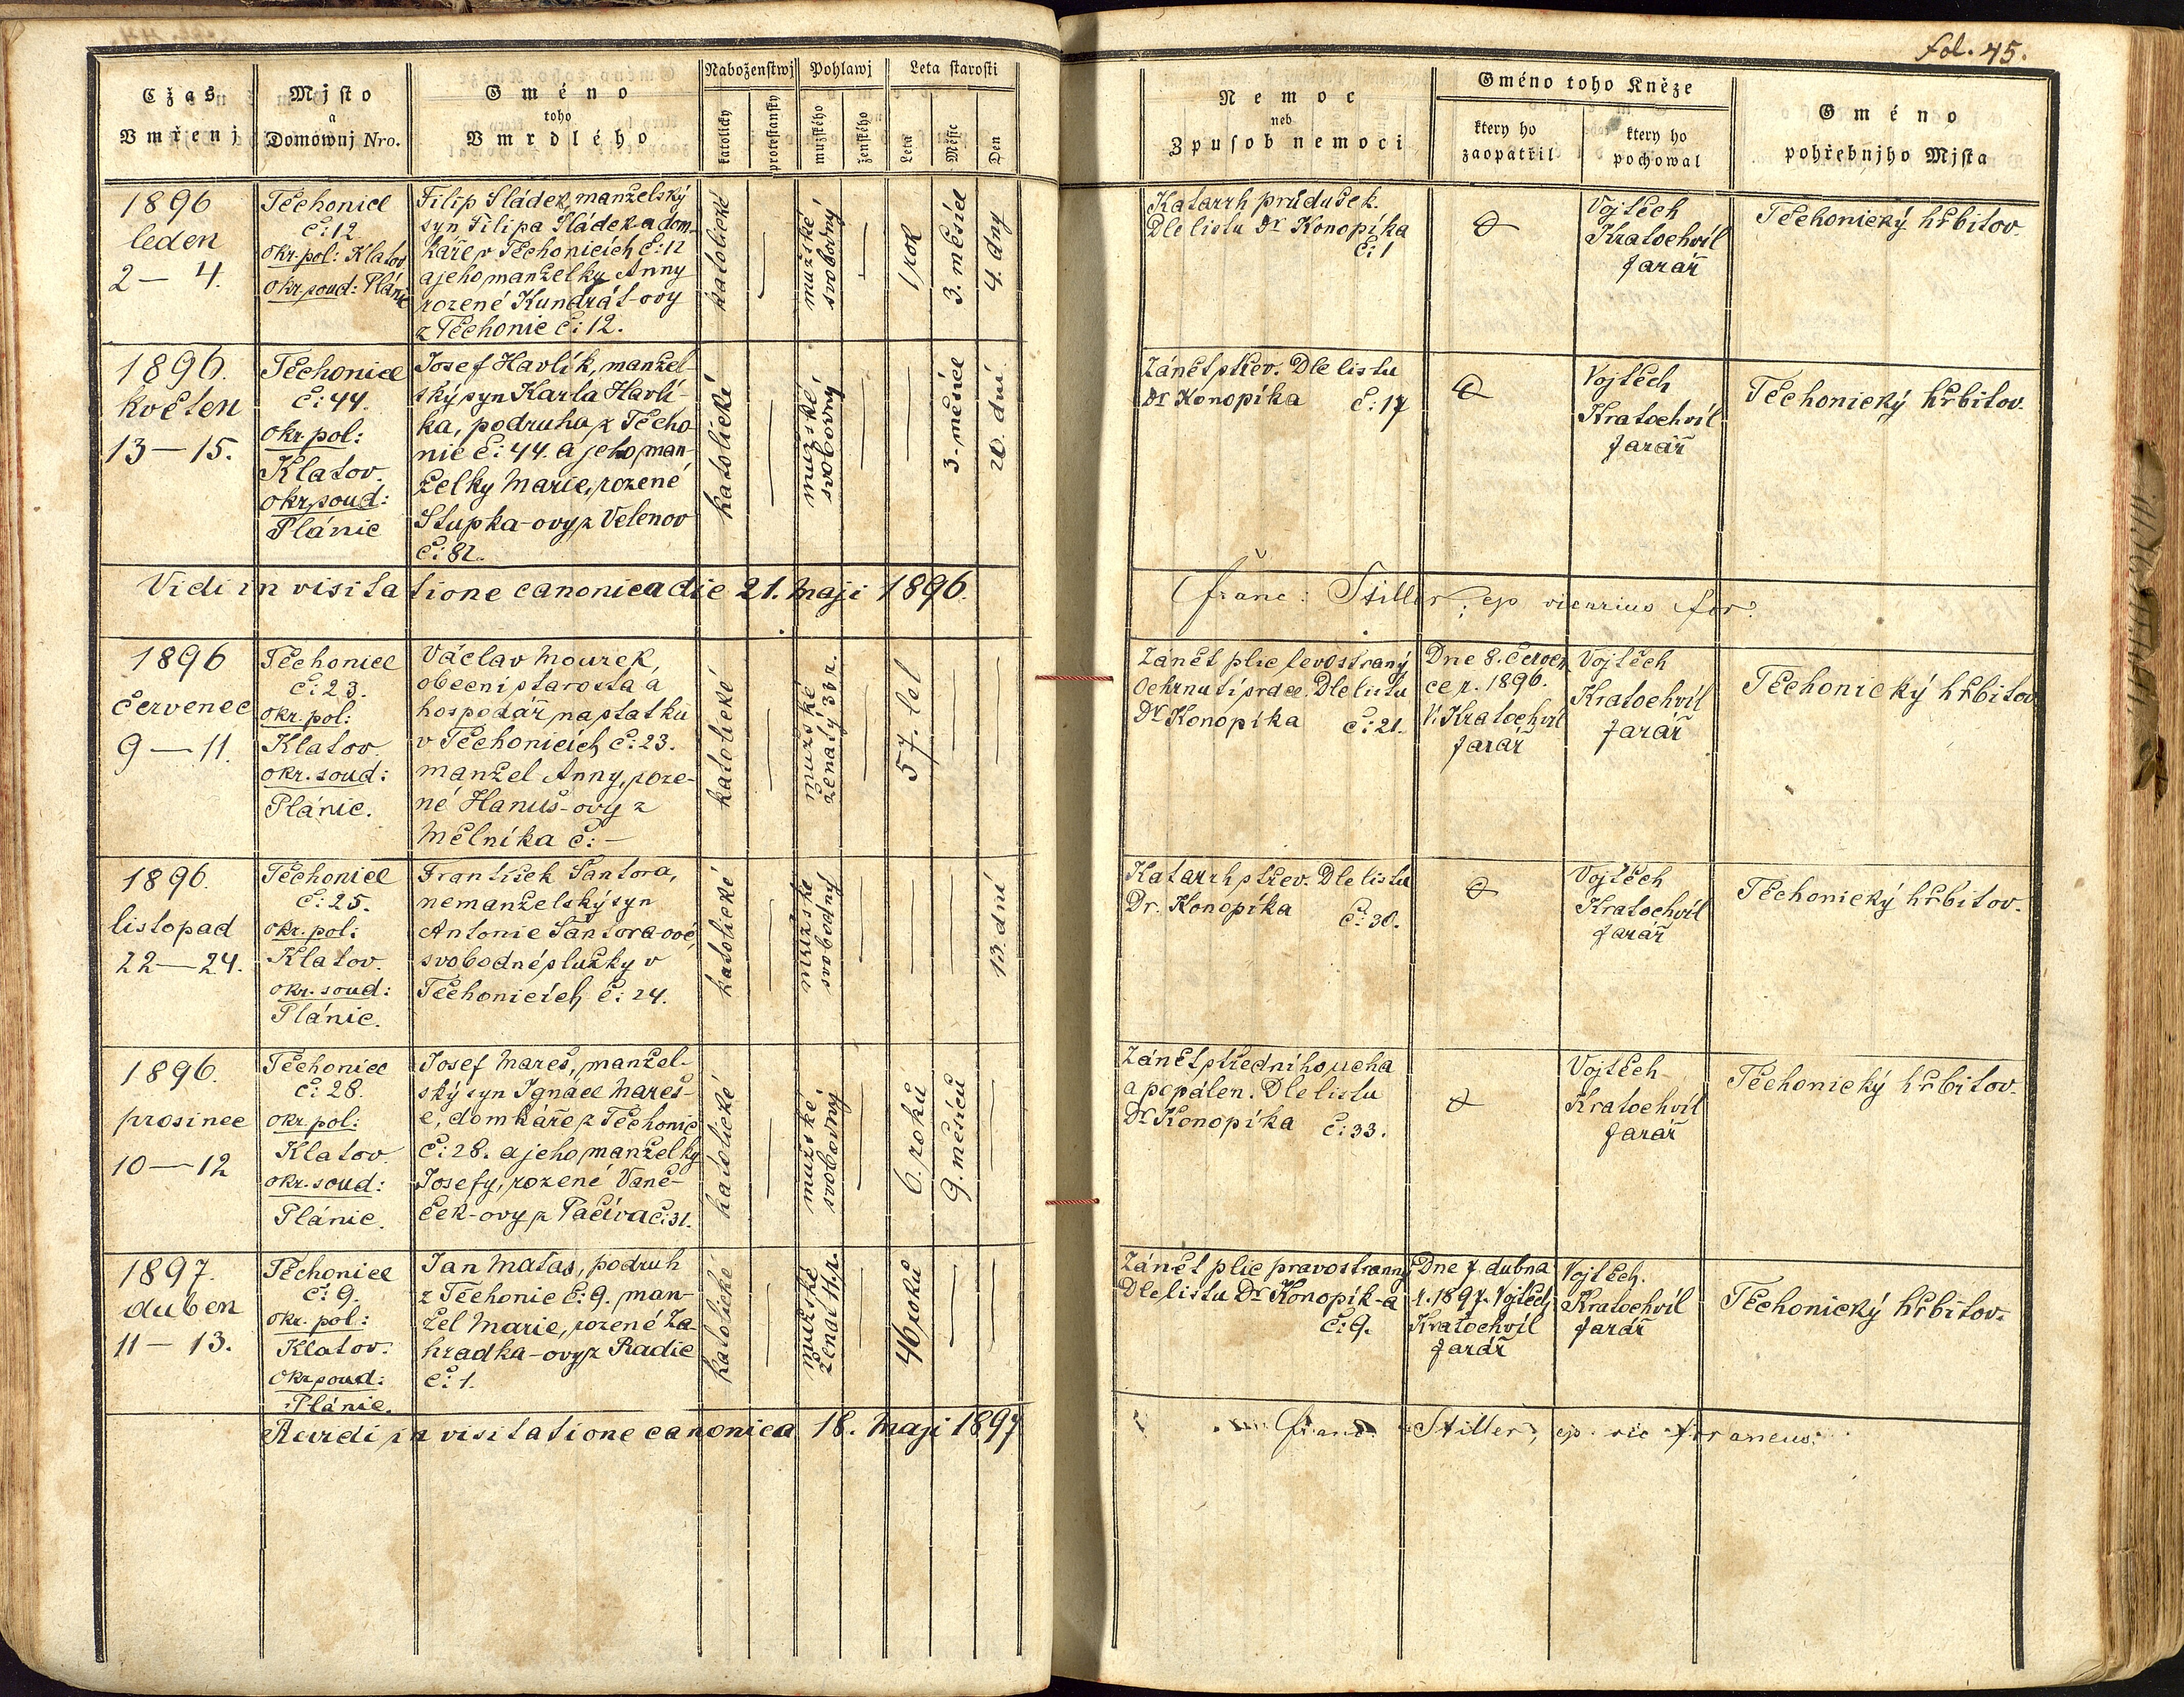 fol. 45.
Cžas
Vmřenj
Mjsto
a
Domownj Nro.
Gméno
toho
Vmrdlého
Náboženstwj
katolický
protestanský
Pohlawj
mužského
ženského
Leta starosti
Leta
Měsíc
Den
Nemoc
neb
Zpusob nemoci
Gméno toho Kněze
ktery ho
zaopatřil
ktery ho
pochowal
Gméno
pohřebnjho Mjsta
1896
leden
2 — 4.
Těchonice
č: 12
okr. pol: Klatov
okr. soud: Plánic
Filip Sládek, manželský
syn Filipa Sládek-a dom-
káře v Těchonicích č: 12
a jeho manželky Anny
rozené Kundrát-ovy
z Těchonic č: 12.
katolické
—
mužské
svobodný
—
1 rok
3. měsíce
4. dny
Katarrh průdušek.
Dle listu Dr Konopíka
č: 1
Vojtěch
Kratochvíl
farář
Těchonický hřbitov.
1896.
květen
13 — 15.
Těchonice
č: 44.
okr. pol:
Klatov.
okr. soud:
Plánic
Josef Havlík, manžel-
ský syn Karla Havlí-
ka, podruha z Těcho
nic č: 44. a jeho man-
želky Marie, rozené
Stupka-ovy z Velenov
č: 82.
katolické
—
mužské
svobodný
—
—
3. měsíce
20. dní
Zánět střev. Dle listu
Dr Konopíka č: 17
Vojtěch
Kratochvíl
farář
Těchonický hřbitov.
Vidi in visitatione canonica die 21. Maji 1896.
Franc: Stiller, ep vicarius for.
1896
červenec
9 — 11.
Těchonice
č: 23.
okr. pol:
Klatov
okr. soud:
Plánic.
Václav Mourek,
obecní starosta a
hospodář na statku
v Těchonicích č: 23.
manžel Anny, roze-
né Hanuš-ovy z
Mělníka č: —
katolické
—
mužské
ženatý 33 r.
—
57. let
—
—
Zánět plic levostraný
Ochrnutí srdce. Dle listu
Dr Konopíka č: 21.
Dne 8. červen
ce r. 1896.
V. Kratochvíl
farář
Vojtěch
Kratochvíl
farář
Těchonický hřbitov
1896.
listopad
22 — 24.
Těchonice
č: 25.
okr. pol:
Klatov.
okr. soud:
Plánic.
František Šantora,
nemanželský syn
Antonie Šantora-ové,
svobodné služky v
Těchonicích č: 24.
katolické
—
mužské
svobodný
—
—
—
13. dní
Katarrh střev. Dle listu
Dr. Konopíka č: 30.
Vojtěch
Kratochvíl
farář
Těchonický hřbitov.
1896.
prosinec
10 — 12
Těchonice
č: 28.
okr. pol:
Klatov.
okr. soud:
Plánic.
Josef Mareš, manžel-
ský syn Ignáce Mareš-
e, domkáře z Těchonic
č: 28. a jeho manželky
Josefy, rozené Vaně-
ček-ovy z Pačiva č: 31.
katolické
—
mužské
svobodný
—
6. roků
9. měsíců
—
Zánět středního ucha
a popálen. Dle listu
Dr Konopíka č: 33.
Vojtěch
Kratochvíl
farář
Těchonický hřbitov.
1897.
duben
11 — 13.
Těchonice
č: 9.
okr. pol:
Klatov.
okr. soud:
Plánic.
Jan Matas, podruh
z Těchonic č: 9. man-
žel Marie, rozené Za-
hradka-ovy z Radic
č: 1.
katolické
—
mužské
ženat 11. r.
—
46 roků
—
—
Zánět plic pravostranný
Dle listu Dr Konopík-a
č: 9.
Dne 7. dubna
r. 1897. Vojtěch
Kratochvíl
farář
Vojtěch.
Kratochvíl
farář
Těchonický hřbitov.
Revidi in visitatione canonica 18. Maji 1897
Franc. Stiller, ep. vic foraneus.